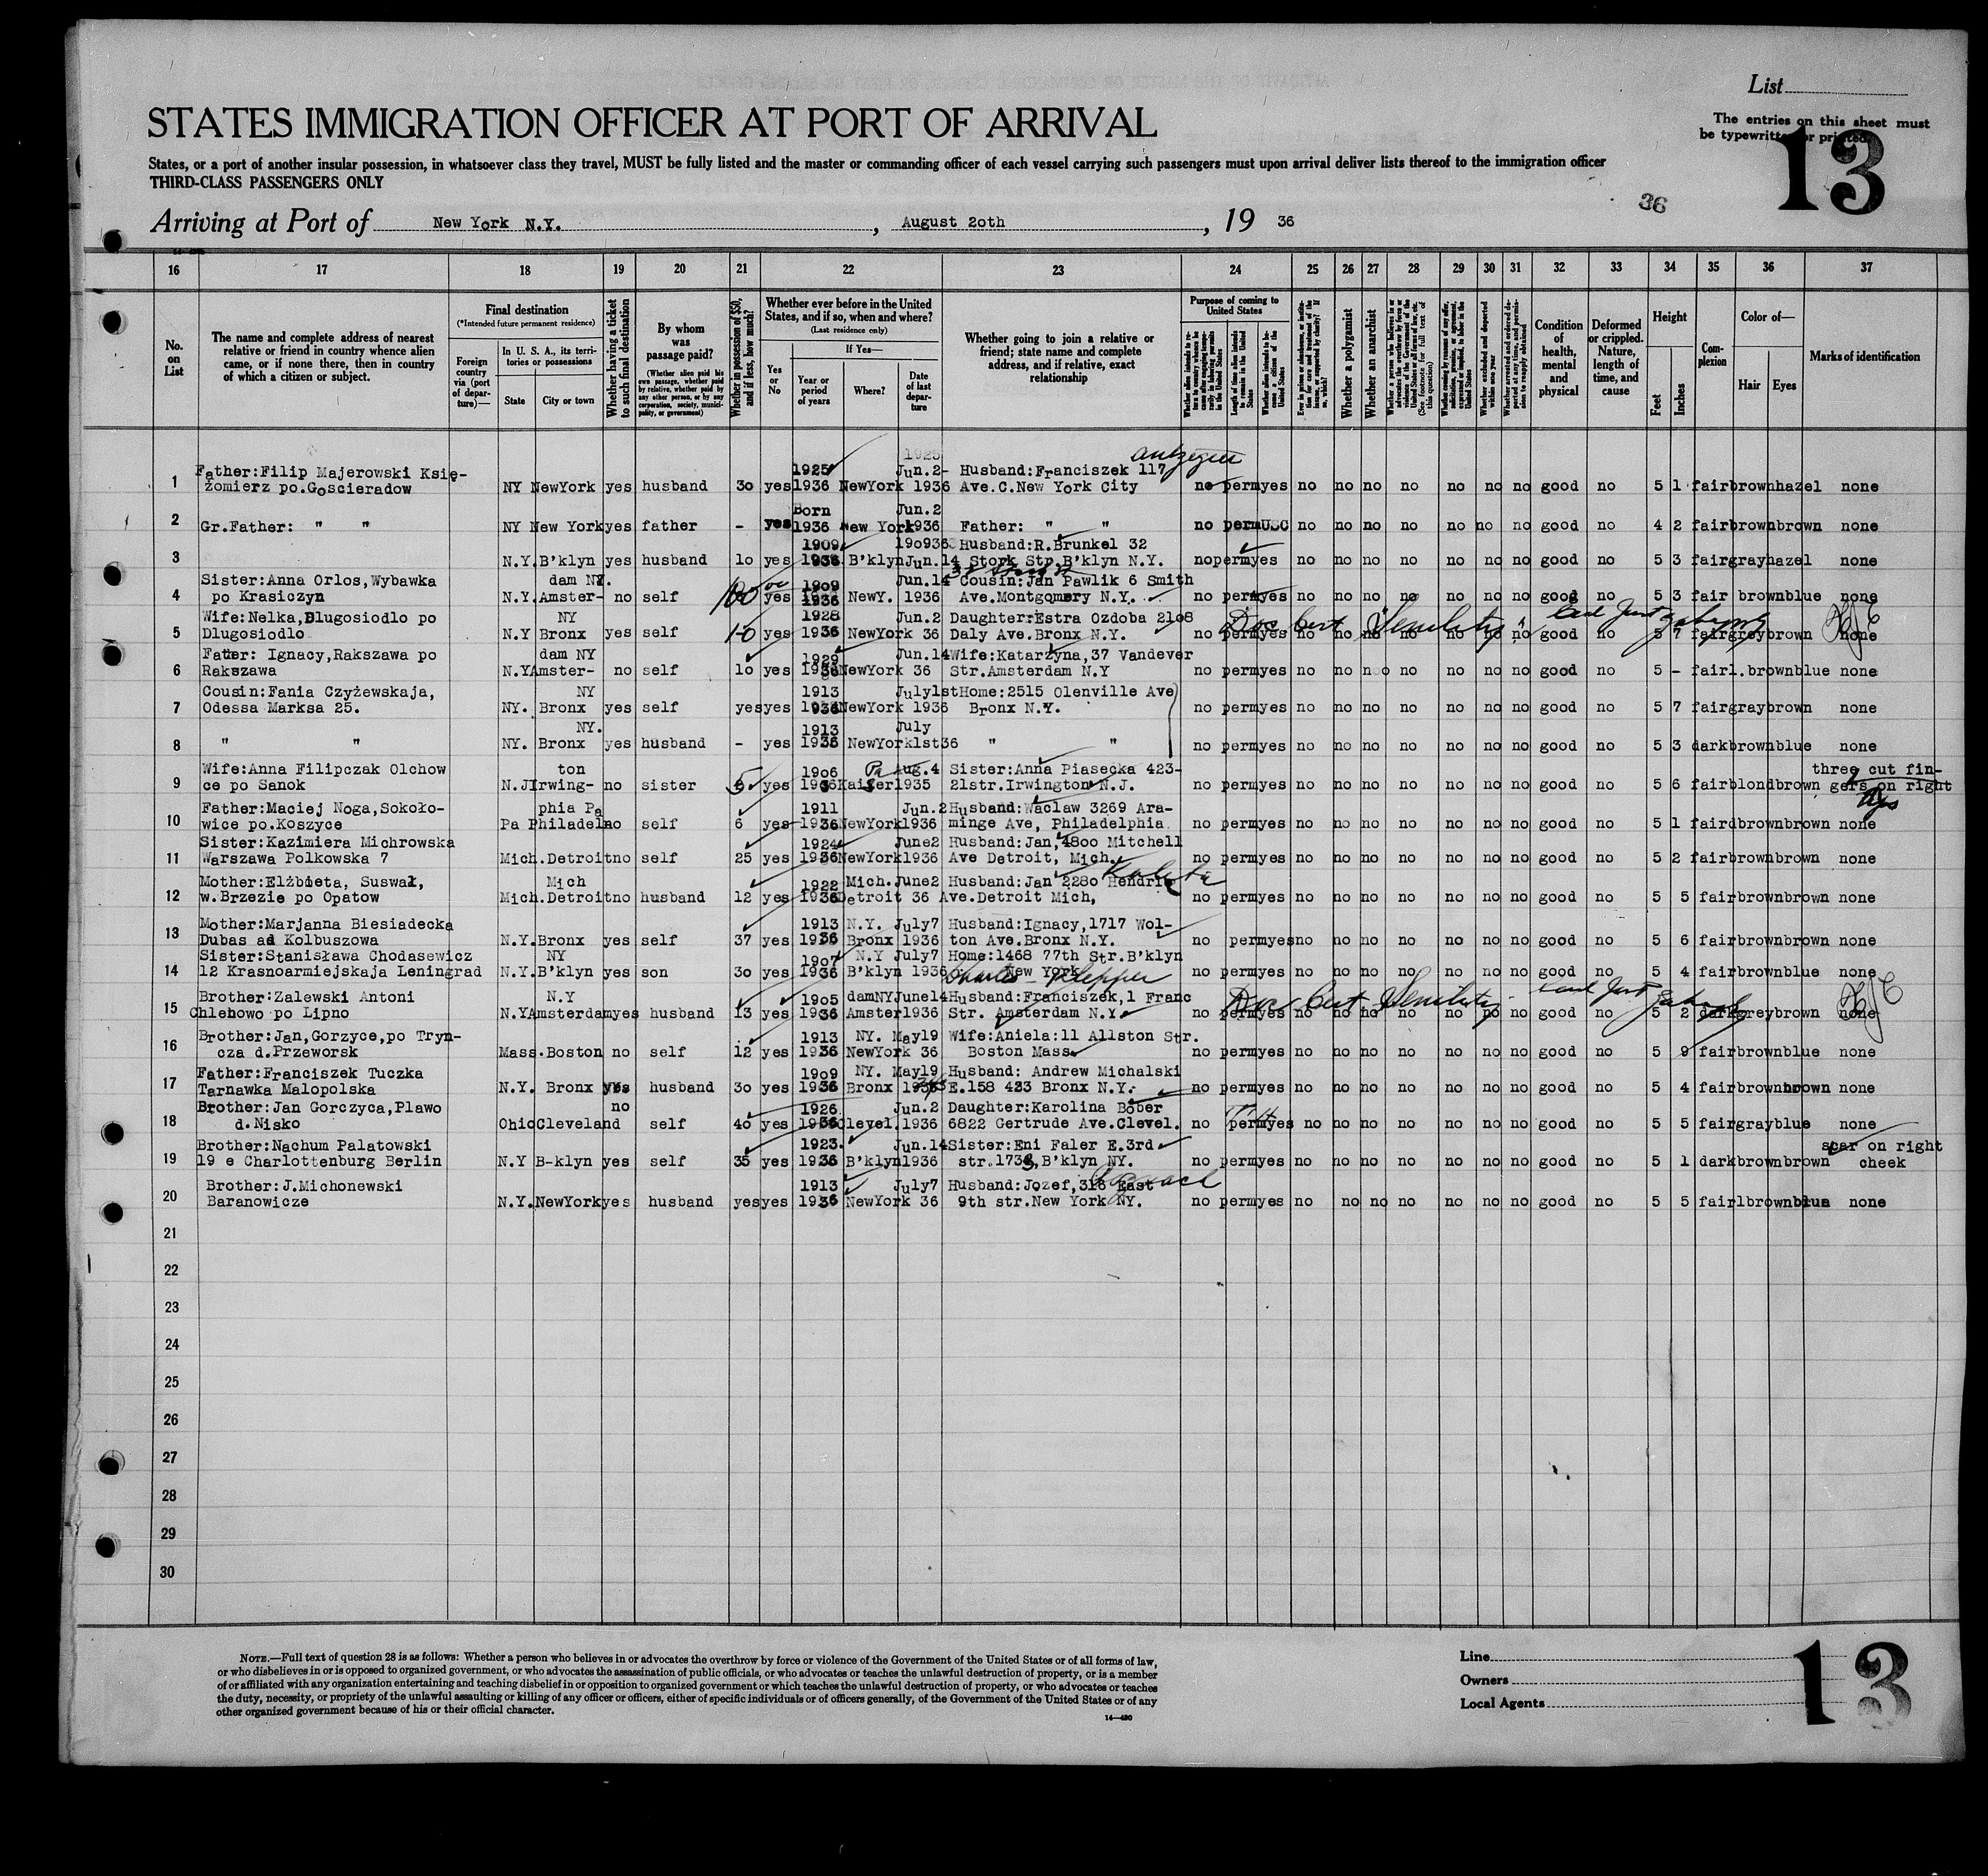 List
The entries on this sheet must
be typewritten or printed
13
STATES IMMIGRATION OFFICER AT PORT OF ARRIVAL
States, or a port of another insular possession, in whatsoever class they travel, MUST be fully listed and the master or commanding officer of each vessel carrying such passengers must upon arrival deliver lists thereof to the immigration officer
THIRD-CLASS PASSENGERS ONLY
36
Arriving at Port of New York N.Y. , August 2oth , 19 36
16 17 18 19 20 21 22 23 24 25 26 27 28 29 30 31 32 33 34 35 36 37
No. on List
The name and complete address of nearest relative or friend in country whence alien came, or if none there, then in country of which a citizen or subject.
Final destination
(*Intended future permanent residence)
Foreign country via (port of departure)—
In U. S. A., its territories or possessions
State
City or town
Whether having a ticket to such final destination
By whom was passage paid?
(Whether alien paid his own passage, whether paid by relative, whether paid by any other person, or by any corporation, society, municipality, or government)
Whether in possession of $50, and if less, how much?
Whether ever before in the United States, and if so, when and where?
(Last residence only)
Yes or No
If Yes—
Year or period of years
Where?
Date of last departure
Whether going to join a relative or friend; state name and complete address, and if relative, exact relationship
Purpose of coming to United States
Length of time alien intends to remain in the United States
Whether alien intends to become a citizen of the United States
Whether a polygamist
Whether an anarchist
(See footnote for full text of this question)
Whether excluded and deported within one year
Condition of health, mental and physical
Deformed or crippled. Nature, length of time, and cause
Height
Feet
Inches
Complexion
Color of—
Hair
Eyes
Marks of identification
1 Father:Filip Majerowski Księ- 1925 Jun.2- Husband:Franciszek 117
żomierz po.Goscieradow NY NewYork yes husband 3o yes 1936 NewYork 1936 Ave.C.New York City no perm yes no no no no no no no good no 5 1 fair brown hazel none
2 Born Jun.2
Gr.Father: " " NY New York yes father - yes 1936 New York 1936 Father: " " no perm USC no no no no no no no good no 4 2 fair brown brown none
3 19o9 19o936 Husband:R.Brunkel 32
N.Y. B'klyn yes husband 1o yes 1936 B'klyn Jun.14 Stork Str.B'klyn N.Y. no perm yes no no no no no no no good no 5 3 fair gray hazel none
4 Sister:Anna Orlos,Wybawka dam NY. 19o9 Jun.14 Cousin:Jan Pawlik 6 Smith
po Krasiczyn N.Y. Amster- no self 100 yes 1936 NewY. 1936 Ave.Montgomery N.Y. no perm yes no no no no no no no good no 5 3 fair brown blue none
5 Wife:Nelka,Dlugosiodlo po NY 1928 Jun.2 Daughter:Estra Ozdoba 21o8
Dlugosiodlo N.Y Bronx yes self 1o yes 1936 NewYork 36 Daly Ave.Bronx N.Y. no perm yes no no no no no no no good no 5 7 fair grey brown none
Doc Cert "Senility"
6 Father: Ignacy,Rakszawa po dam NY 1929 Jun.14 Wife:Katarzyna,37 Vandever
Rakszawa N.Y Amster- no self 1o yes 1936 NewYork 36 Str.Amsterdam N.Y no perm yes no no no no no no no good no 5 - fair l.brown blue none
7 Cousin:Fania Czyżewskaja, NY 1913 July1st Home:2515 Olenville Ave
Odessa Marksa 25. NY. Bronx yes self yes yes 1936 NewYork 1936 Bronx N.Y. no perm yes no no no no no no no good no 5 7 fair gray brown none
8 NY. 1913 July
" " NY. Bronx yes husband - yes 1936 NewYork 1st36 " " no perm yes no no no no no no no good no 5 3 dark brown blue none
9 Wife:Anna Filipczak Olchow ton 19o6 Pa Aug.4 Sister:Anna Piasecka 423- three cut fin-
ce po Sanok N.J Irwing- no sister 5 yes 1936 Kaiser 1935 21str.Irwington N.J. no perm yes no no no no no no no good no 5 6 fair blond brown gers on right
10 Father:Maciej Noga,Sokoło- phia Pa 1911 Jun.2 Husband:Waclaw 3269 Ara-
wice po.Koszyce Pa Philadel no self 6 yes 1936 NewYork 1936 minge Ave, Philadelphia no perm yes no no no no no no no good no 5 1 fair dbrown brown none
11 Sister:Kazimiera Michrowska 1924 June2 Husband:Jan,48oo Mitchell
Warszawa Polkowska 7 Mich. Detroit no self 25 yes 1936 NewYork 1936 Ave Detroit, Mich. no perm yes no no no no no no no good no 5 2 fair brown brown none
12 Mother:Elżbieta, Suswał, Mich 1922 Mich. June2 Husband:Jan 228o Hendrie
w.Brzezie po Opatow Mich. Detroit no husband 12 yes 1936 Detroit 36 Ave.Detroit Mich, no perm yes no no no no no no no good no 5 5 fair brown brown none
13 Mother:Marjanna Biesiadecka 1913 N.Y. July7 Husband:Ignacy,1717 Wol-
Dubas ad Kolbuszowa N.Y. Bronx yes self 37 yes 1936 Bronx 1936 ton Ave.Bronx N.Y. no perm yes no no no no no no no good no 5 6 fair brown brown none
14 Sister:Stanisława Chodasewicz NY 19o7 N.Y July7 Home:1468 77th Str.B'klyn
12 Krasnoarmiejskaja Leningrad N.Y. B'klyn yes son 3o yes 1936 B'klyn 1936 New York no perm yes no no no no no no no good no 5 4 fair brown blue none
Charles Klepper
15 Brother:Zalewski Antoni N.Y 19o5 damNY June14 Husband:Franciszek,1 Franc
Chlebowo po Lipno N.Y Amsterdam yes husband 13 yes 1936 Amster 1936 Str. Amsterdam N.Y. no perm yes no no no no no no no good no 5 2 dark grey brown none
Doc Cert Senility
16 Brother:Jan,Gorzyce,po Tryn- 1913 NY. May19 Wife:Aniela:11 Allston Str.
cza d.Przeworsk Mass. Boston no self 12 yes 1936 NewYork 36 Boston Mass. no perm yes no no no no no no no good no 5 9 fair brown blue none
17 Father:Franciszek Tuczka 19o9 NY. May19 Husband: Andrew Michalski
Tarnawka Malopolska N.Y. Bronx yes husband 3o yes 1936 Bronx 1936 E.158 423 Bronx N.Y. no perm yes no no no no no no no good no 5 4 fair brown brown none
18 Brother:Jan Gorczyca,Plawo no 1926 Jun.2 Daughter:Karolina Bober
d.Nisko Ohio Cleveland self 4o yes 1936 Clevel. 1936 6822 Gertrude Ave.Clevel. no perm yes no no no no no no no good no 5 5 fair gray blue none
19 Brother:Nachum Palatowski 1923. Jun.14 Sister:Eni Faler E.3rd scar on right
19 e Charlottenburg Berlin N.Y B-klyn yes self 35 yes 1936 B'klyn 1936 str.1738,B'klyn NY. no perm yes no no no no no no no good no 5 1 dark brown brown cheek
20 Brother:J.Michonewski 1913 July7 Husband:Jozef,316 East
Baranowicze N.Y. NewYork yes husband yes yes 1936 NewYork 36 9th str.New York NY. no perm yes no no no no no no no good no 5 5 fair lbrown blue none
21
22
23
24
25
26
27
28
29
30
NOTE.—Full text of question 28 is as follows: Whether a person who believes in or advocates the overthrow by force or violence of the Government of the United States or of all forms of law,
or who disbelieves in or is opposed to organized government, or who advocates the assassination of public officials, or who advocates or teaches the unlawful destruction of property, or is a member
of or affiliated with any organization entertaining and teaching disbelief in or opposition to organized government or which teaches the unlawful destruction of property, or who advocates or teaches
the duty, necessity, or propriety of the unlawful assaulting or killing of any officer or officers, either of specific individuals or of officers generally, of the Government of the United States or of any
other organized government because of his or their official character.
14—430
Line
Owners
Local Agents
13